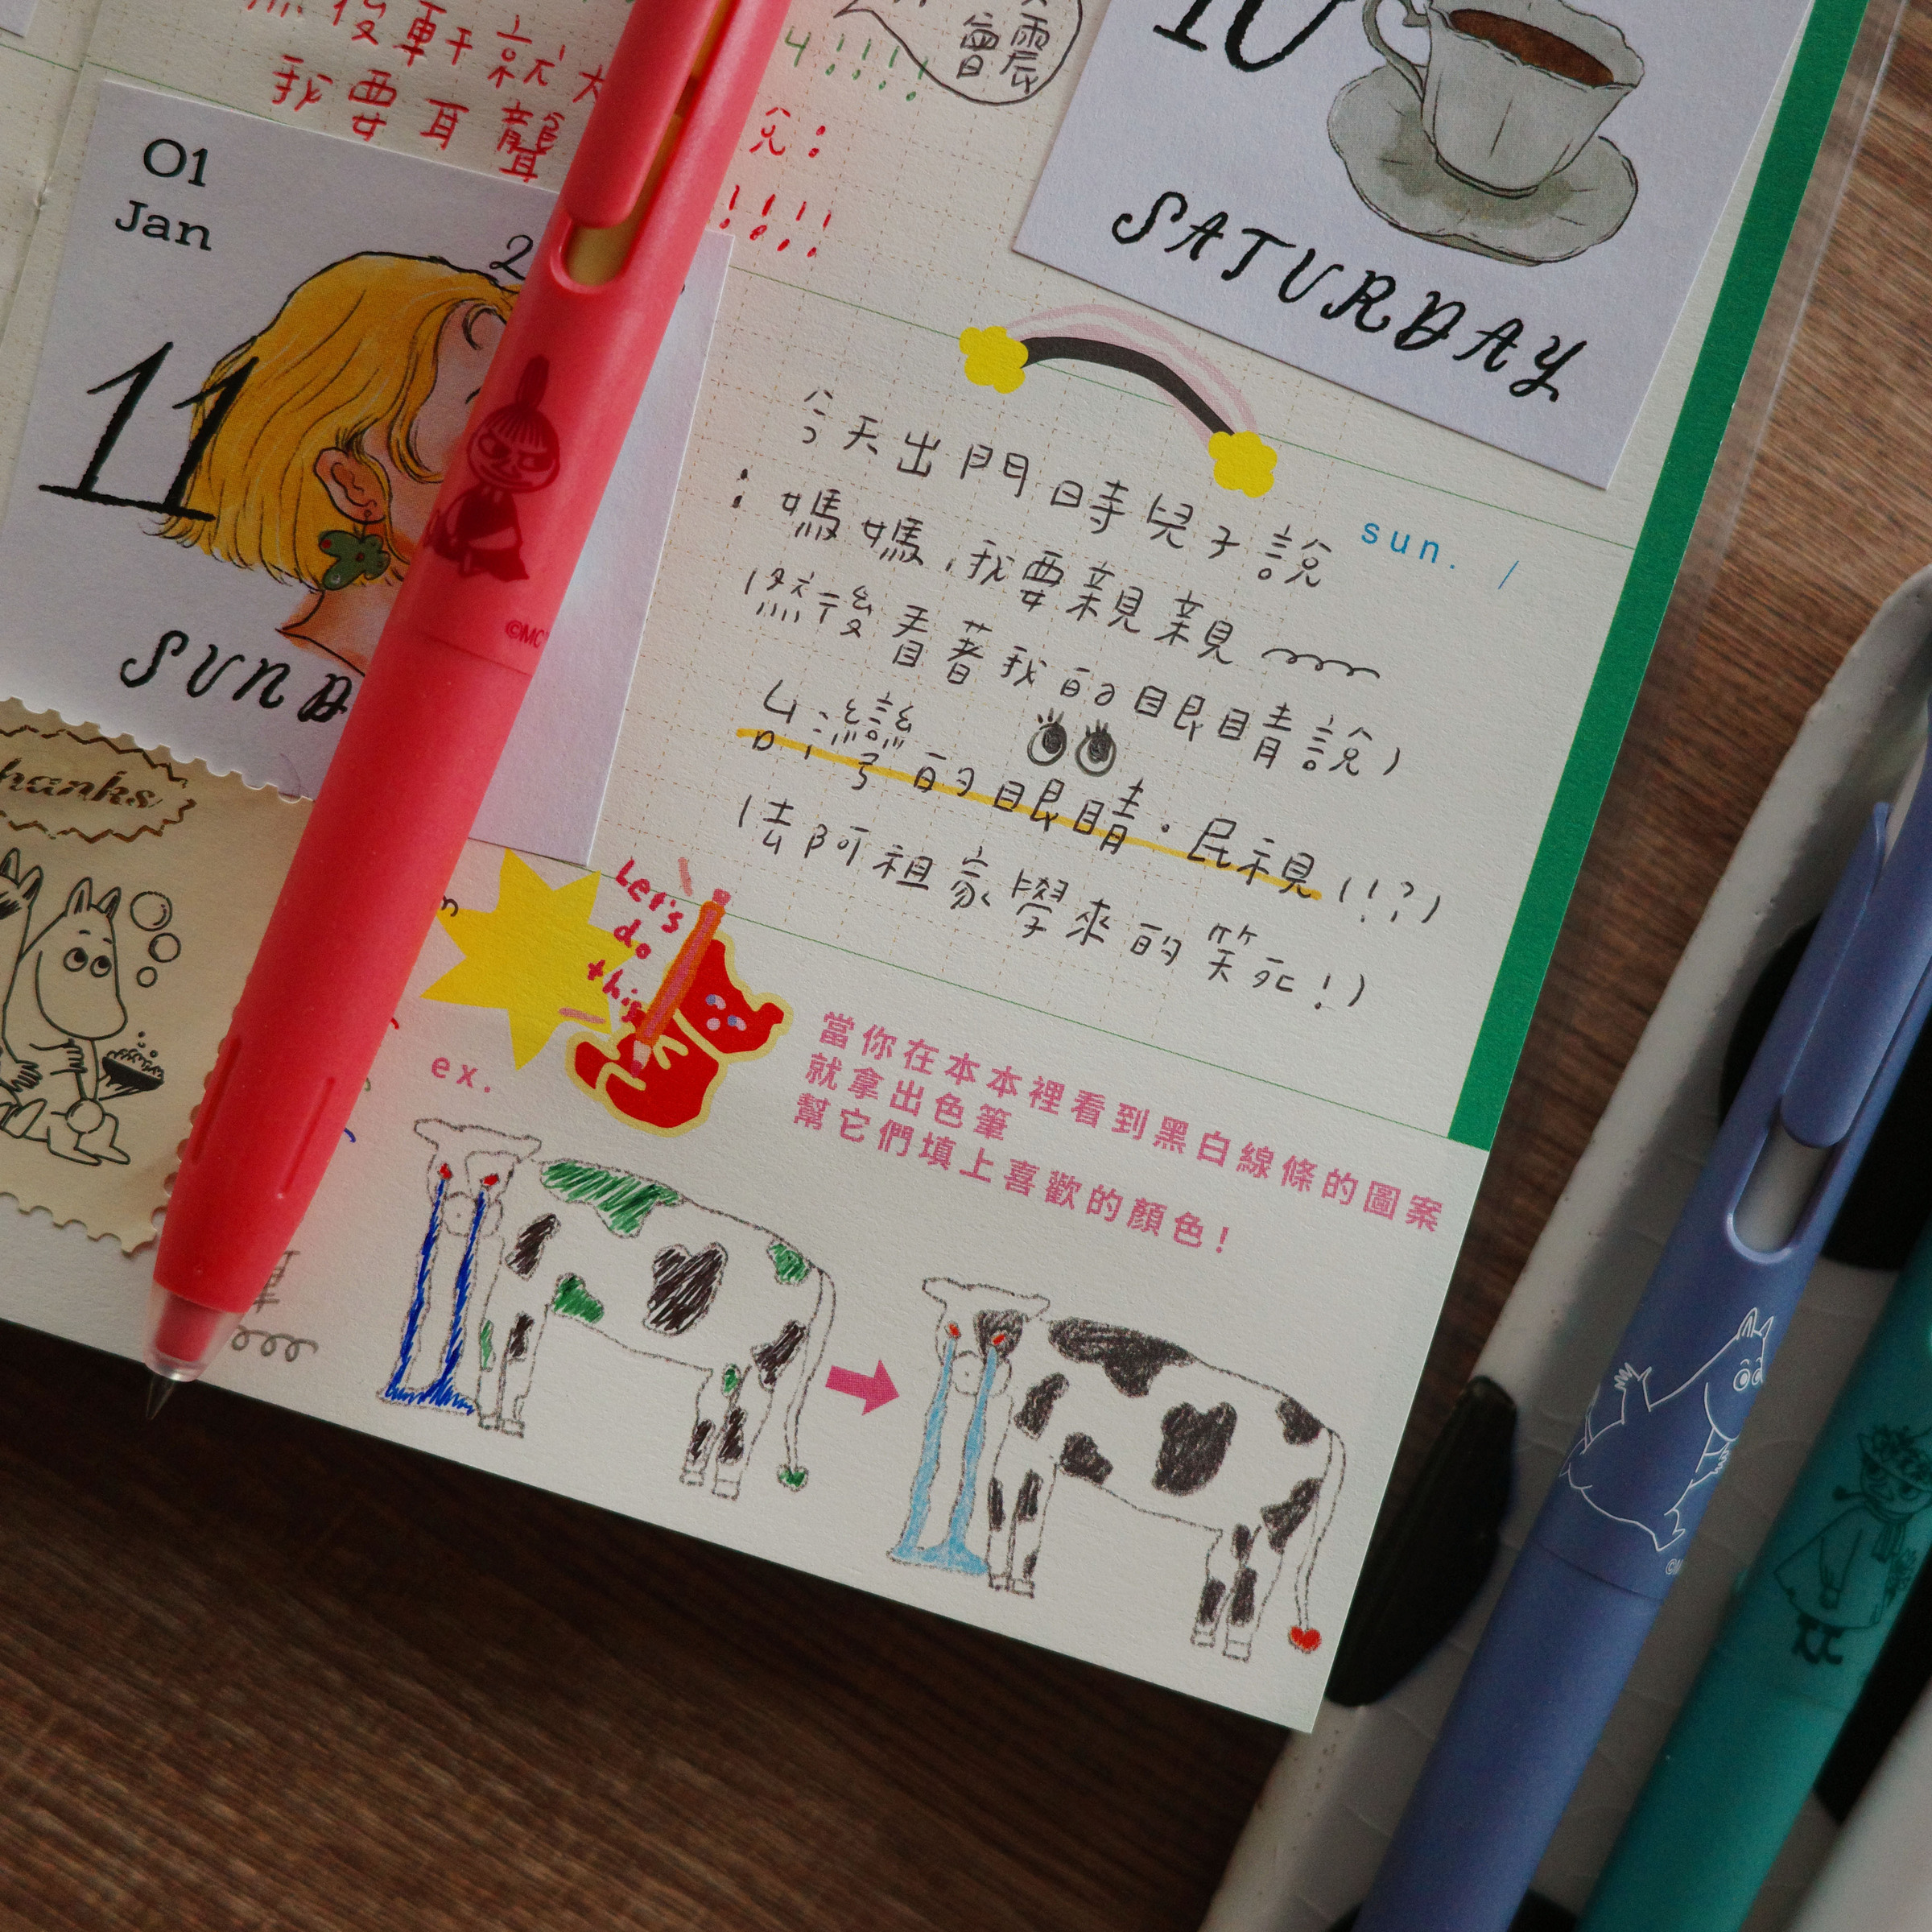 後軒就大
我要耳聾
!!!!
4!!!!
曾震
01
Jan
2
11
SUND
10
SATURDAY
©MC
今天出門時兒子說
sun. /
：媽媽，我要親親
(然後看著我的眼睛說)
台灣的眼睛·民視(!!?)
(去阿祖家學來的笑死!)
hanks
Let's
do
this
ex.
當你在本本裡看到黑白線條的圖案
就拿出色筆
幫它們填上喜歡的顏色！